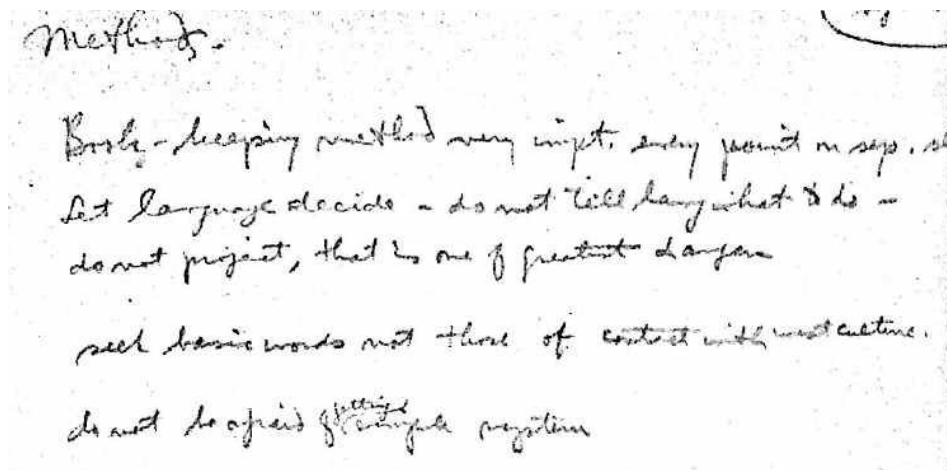 Methods.
Book-keeping method very impt. every point on sep.
Let language decide - do not tell lang what to do -
do not project, that is one of greatest dangers
seek basic words not those of contact with west culture.
do not be afraid of getting simple system